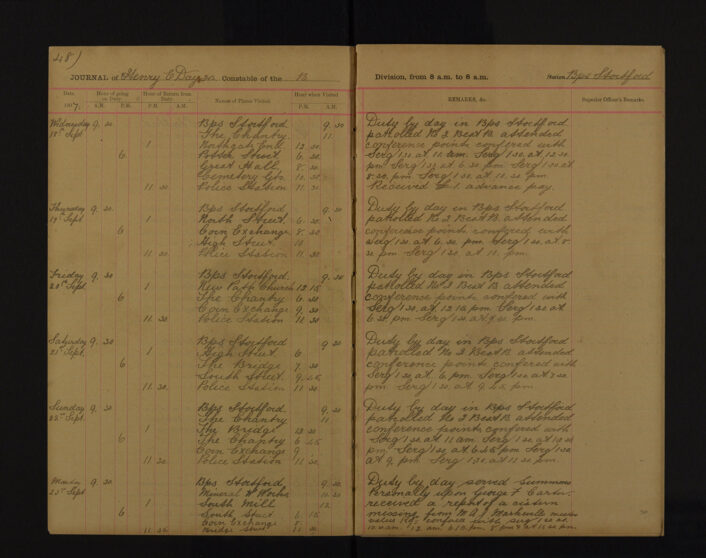 48)
JOURNAL of Henry E Day Constable of the B
Date. Hour of going on Duty. Hour of Return from Duty. Names of Places Visited Hour when Visited
1907. A.M. P.M. P.M. A.M. P.M. A.M.
Wednesday 9. 30 Bps Stortford 9 30
18th Sept The Chantry 11
1 Northgate End 12 30
6 Potter Street 6. 30
Great Hall 8. 30
Cemetery 10. 30
11 30 Police Station 11. 30
Thursday 9. 30 Bps Stortford 9 30
19th Sept 1 North Street 6. 30
6 Corn Exchange 8. 30
High Street 10
11 30 Police Station 11 30
Friday 9. 30 Bps Stortford 9. 30
20th Sept 1 New Path Church 12 15
6 The Chantry 6. 30
Corn Exchange 9. 30
11 30 Police Station 11 30
Saturday 9. 30 Bps Stortford 9 30
21st Sept. 1 High Street 6
6 The Bridge 7 30
South Street 9. 45
11 30 Police Station 11 30
Sunday 9. 30 Bps Stortford 9. 30
22nd Sept The Chantry 11
1 The Bridge 12 30
6 The Chantry 6 45
Corn Exchange 9
11 30 Police Station 11 30
Monday 9. 30 Bps Stortford 9. 30
23rd Sept Mineral W Works 10. 30
1 South Mill 12
6 South Street 6 15
Corn Exchange 8.
11 30 Bridge Street 11 30
Division, from 8 a.m. to 6 a.m. Station Bps Stortford
REMARKS, &c. Superior Officer's Remarks.
Duty by day in Bps Stortford
patrolled No 2 Beat B attended
conference points conferred with
Serg 1 30 at 11 am. Serg 1 30 at 12 30
pm Serg 1 30 at 6. 30 pm Serg 1 30 at
8. 30 pm. Serg 1 30 at 10. 30 pm
Received £1. advance pay.
Duty by day in Bps Stortford
patrolled No 2 Beat B. attended
conference points conferred with
Serg 1 30 at 6. 30 pm. Serg 1 30 at 8.
30 pm Serg 1 30 at 10. pm.
Duty by day in Bps Stortford
patrolled No 2 Beat B attended
conference points conferred with
Serg 1 30 at 12 15 pm Serg 1 30 at
6 30 pm Serg 1 30 at 9. 30 pm.
Duty by day in Bps Stortford
patrolled No 2 Beat B. attended
conference points conferred with
Serg 1 30 at 6 pm. Serg 1 30 at 7. 30
pm Serg 1 30 at 9. 45 pm.
Duty by day in Bps Stortford
patrolled No 2 Beat B attended
conference points conferred with
Serg 1 30 at 11 am Serg 1 30 at 12 30
pm. Serg 1 30 at 6. 45 pm Serg 1 30
at 9. pm Serg 1 30 at 11 30 pm
Duty by day served Summons
Personally upon George F
received a report of a cistern
missing from
value conferred with Serg 1 30 at